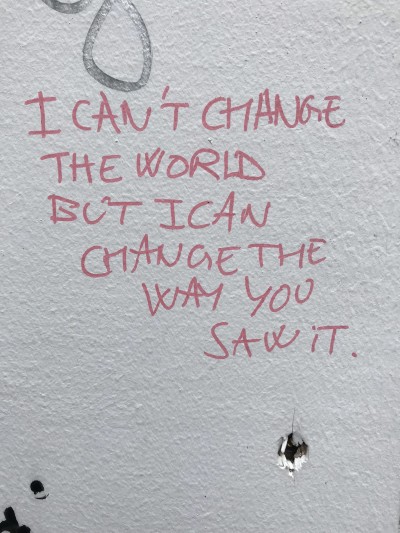 I CAN'T CHANGE
THE WORLD
BUT I CAN
CHANGE THE
WAY YOU
SAW IT.